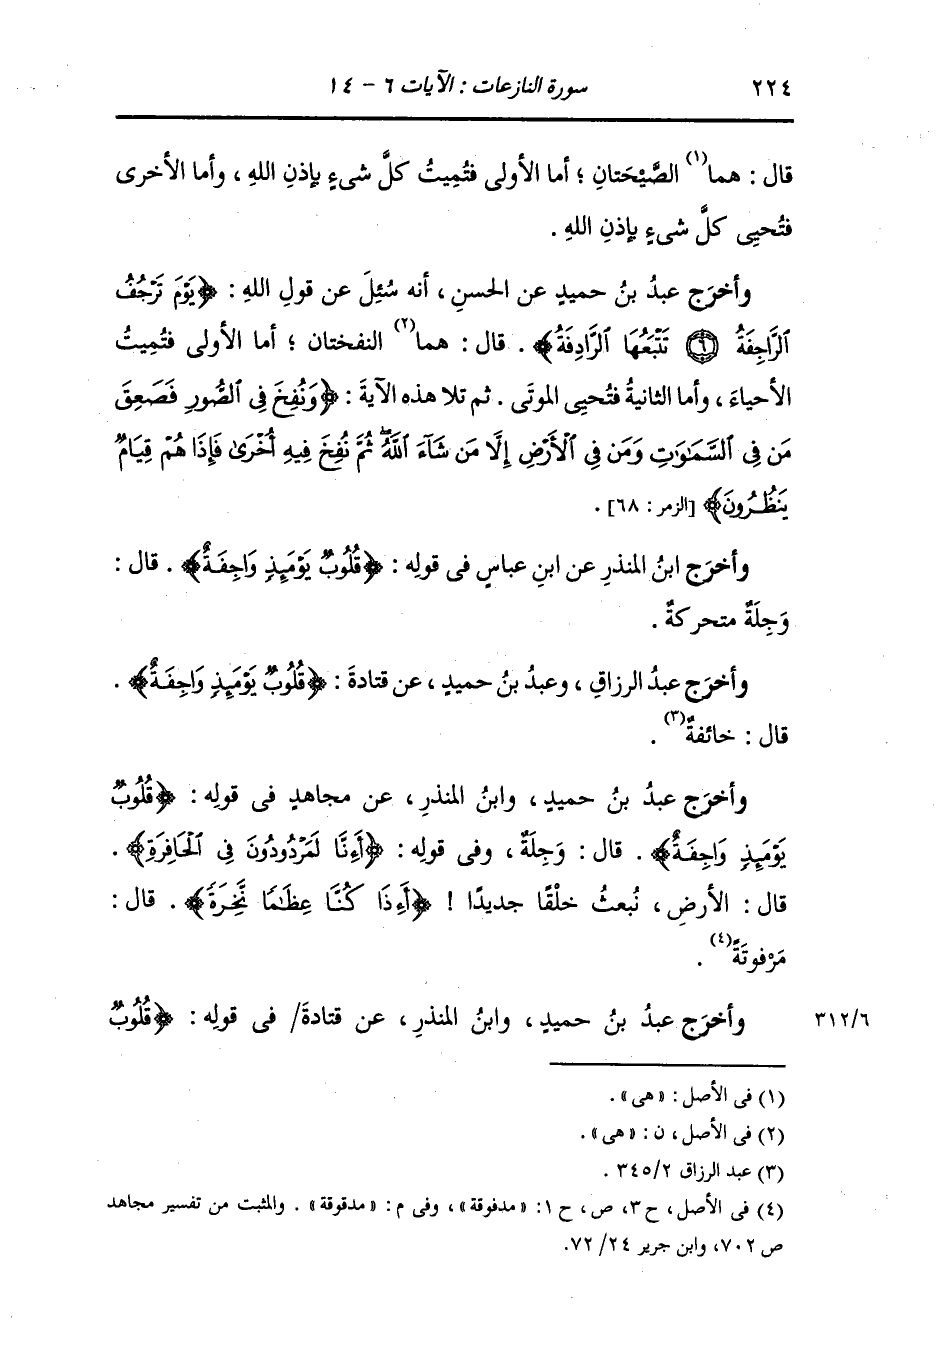 ٢٢٤ سورة النازعات : الآيات ٦ - ١٤
قال : هما(١) الصَّيْحَتانِ ؛ أما الأولى فتُمِيتُ كلَّ شىءٍ بإذنِ اللهِ ، وأما الأخرى
فتُحيِى كلَّ شىءٍ بإذنِ اللهِ .
وأخرَج عبدُ بنُ حميدٍ عن الحسنِ ، أنه سُئِلَ عن قولِ اللهِ : ﴿يَوْمَ تَرْجُفُ
ٱلرَّاجِفَةُ ۝٦ تَتْبَعُهَا ٱلرَّادِفَةُ﴾ . قال : هما(٢) النفختان ؛ أما الأولى فتُمِيتُ
الأحياءَ ، وأما الثانيةُ فتُحيى الموتَى . ثم تلا هذه الآيةَ : ﴿وَنُفِخَ فِى ٱلصُّورِ فَصَعِقَ
مَن فِى ٱلسَّمَٰوَٰتِ وَمَن فِى ٱلْأَرْضِ إِلَّا مَن شَآءَ ٱللَّهُ ۖ ثُمَّ نُفِخَ فِيهِ أُخْرَىٰ فَإِذَا هُمْ قِيَامٌ
يَنظُرُونَ﴾ [الزمر : ٦٨] .
وأخرَج ابنُ المنذرِ عن ابنِ عباسٍ فى قولِه : ﴿قُلُوبٌ يَوْمَئِذٍ وَاجِفَةٌ﴾ . قال :
وَجِلَةٌ متحركةٌ .
وأخرَج عبدُ الرزاقِ ، وعبدُ بنُ حميدٍ ، عن قتادةَ : ﴿قُلُوبٌ يَوْمَئِذٍ وَاجِفَةٌ﴾ .
قال : خائفةٌ(٣) .
وأخرَج عبدُ بنُ حميدٍ ، وابنُ المنذرِ ، عن مجاهدٍ فى قولِه : ﴿قُلُوبٌ
يَوْمَئِذٍ وَاجِفَةٌ﴾ . قال : وَجِلَةٌ ، وفى قولِه : ﴿أَءِنَّا لَمَرْدُودُونَ فِى ٱلْحَافِرَةِ﴾ .
قال : الأرضِ ، نُبعثُ خلْقًا جديدًا ! ﴿أَءِذَا كُنَّا عِظَٰمًا نَّخِرَةً﴾ . قال :
مَرْفوتَةً(٤) .
وأخرَج عبدُ بنُ حميدٍ ، وابنُ المنذرِ ، عن قتادةَ/ فى قولِه : ﴿قُلُوبٌ ٣١٢/٦
(١) فى الأصل : « هى » .
(٢) فى الأصل ، ن : « هى » .
(٣) عبد الرزاق ٣٤٥/٢ .
(٤) فى الأصل ، ح ٣، ص ، ح ١: « مدفوقة » ، وفى م : « مدقوقة » . والمثبت من تفسير مجاهد
ص ٧٠٢، وابن جرير ٢٤ /٧٢.